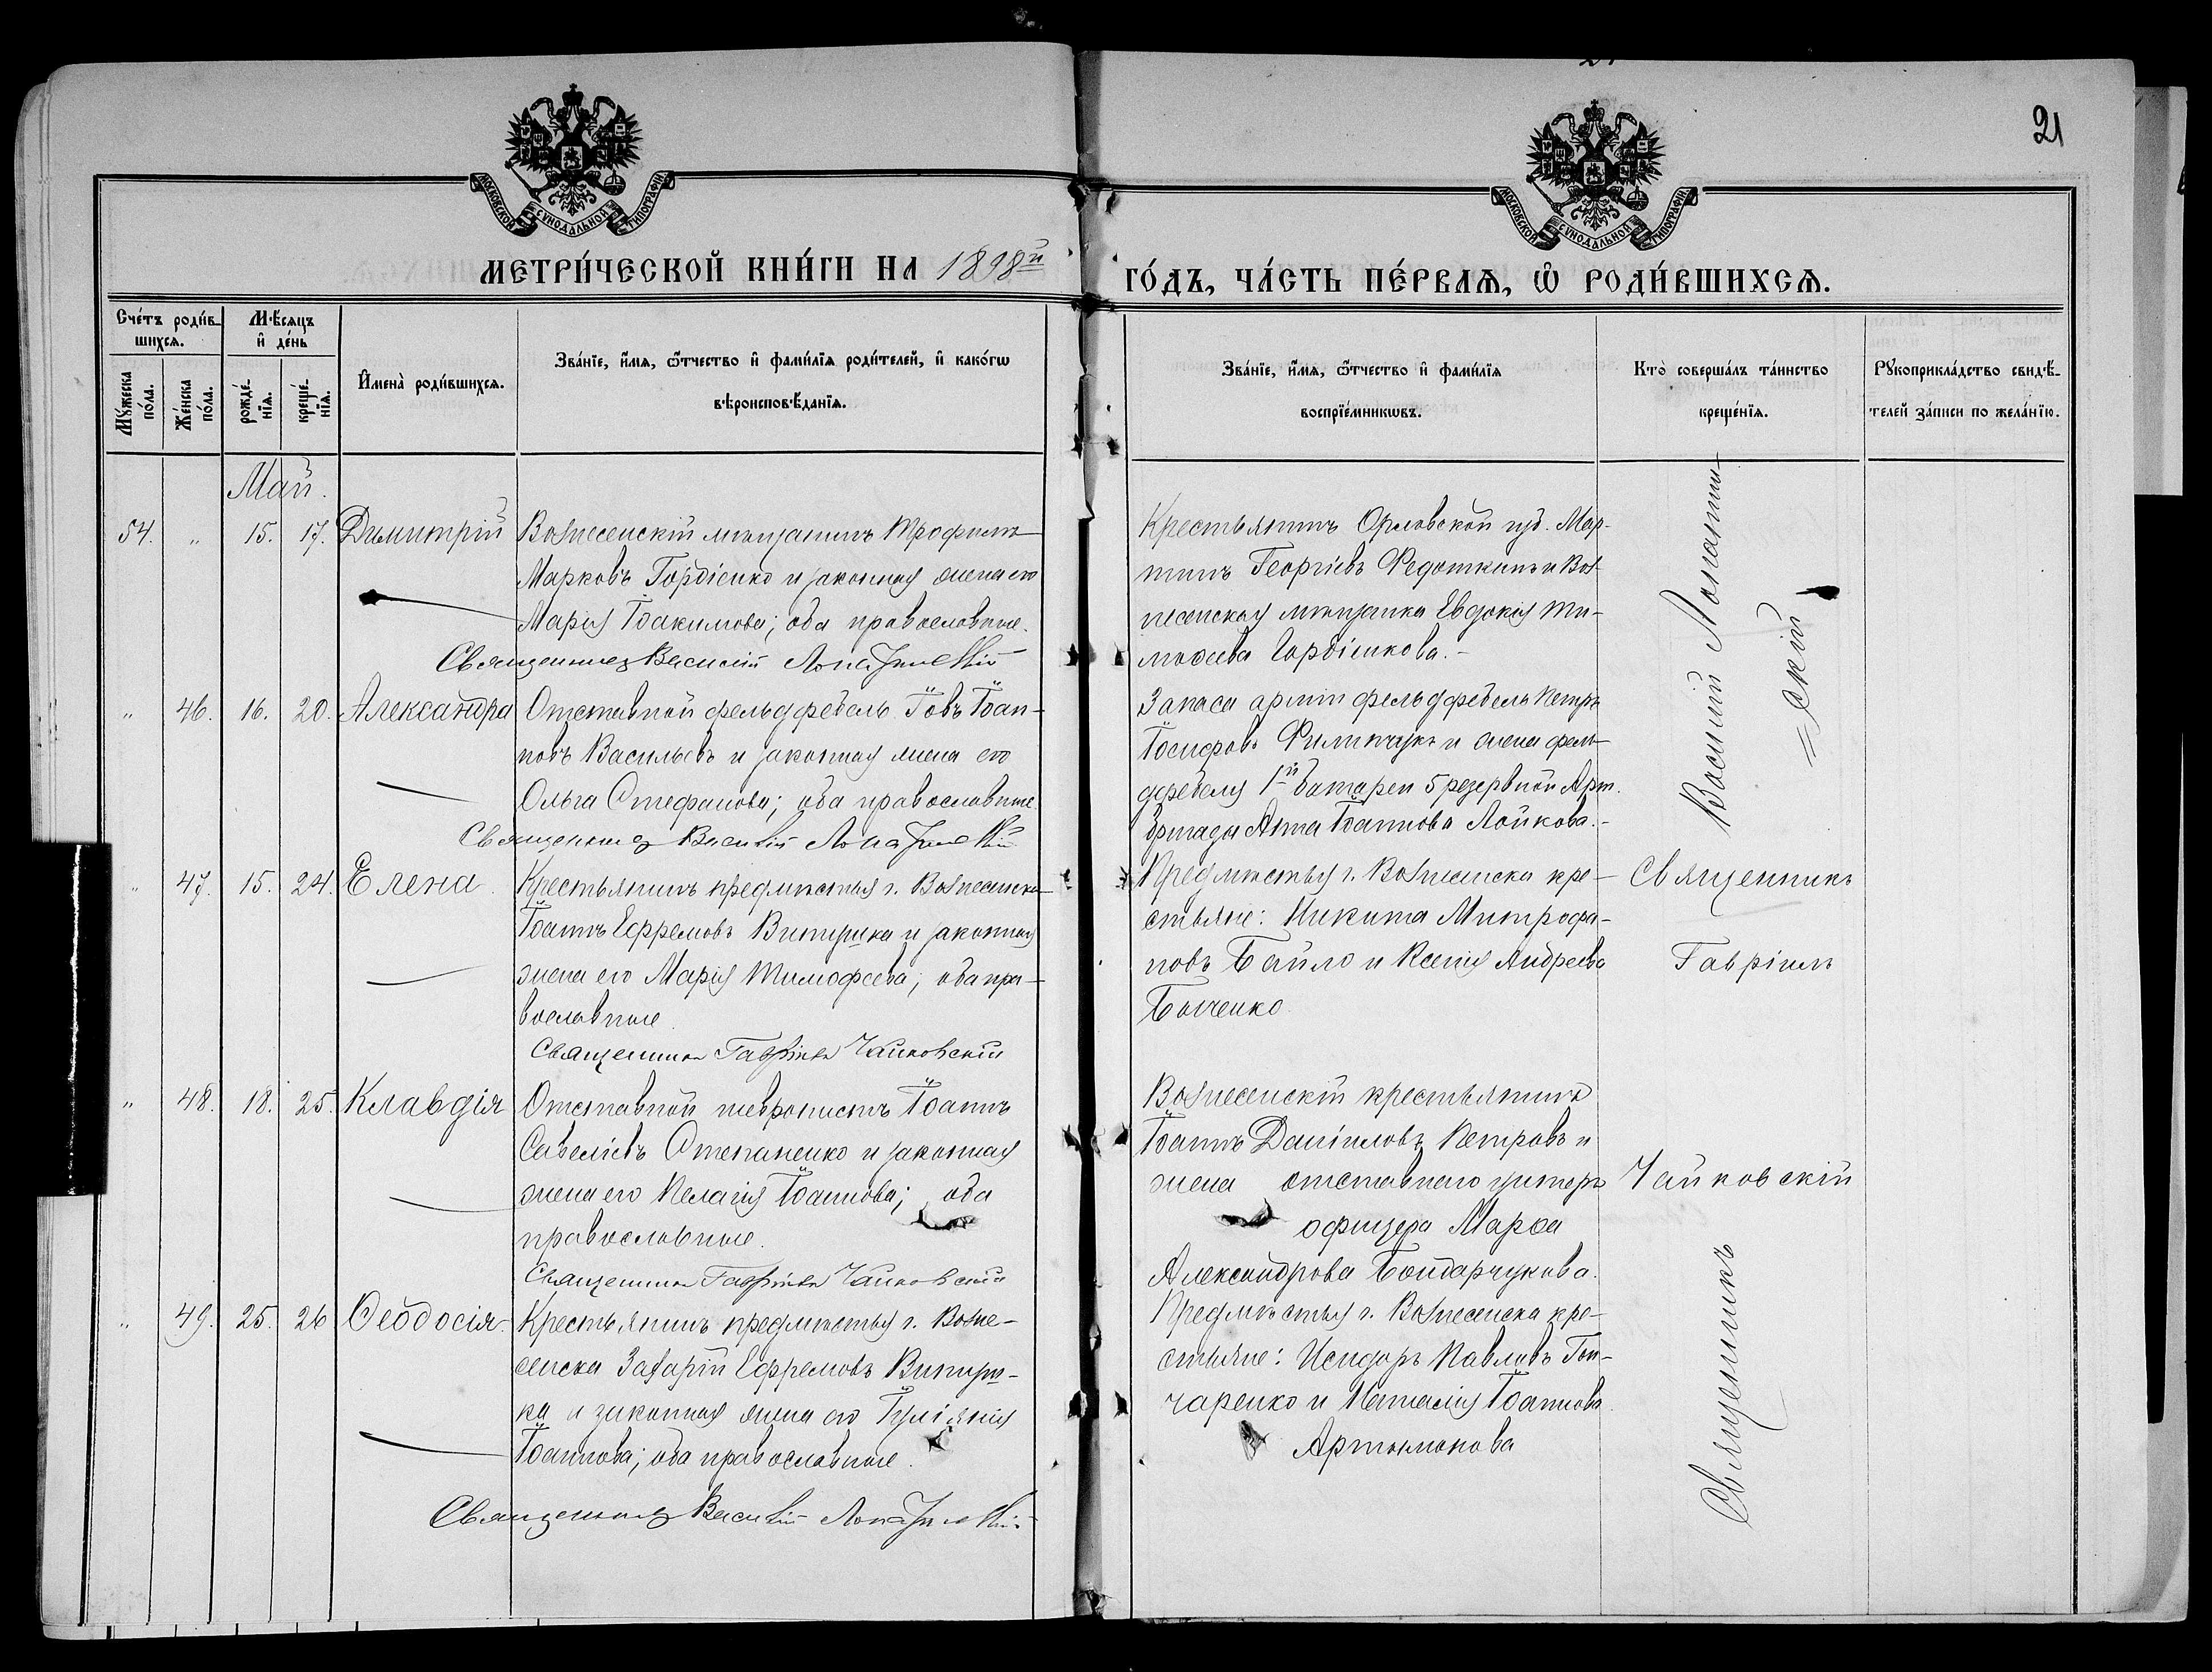 21
МОСКОВСКОЙ СѴНОДАЛЬНОЙ ТИПОГРАФІИ
МОСКОВСКОЙ СѴНОДАЛЬНОЙ ТИПОГРАФІИ
МЕТРИ́ЧЕСКОЙ КНИ́ГИ НА 1898й
ГО́ДЪ, ЧА́СТЬ ПЕ́РВАѦ, Ѽ РОДИ́ВШИХСѦ.
Сче́тъ роди́вшихся.
Мꙋ́жеска по́ла.
Же́нска по́ла.
Мѣ́сяцъ и де́нь
рожде́нїя.
креще́нїя.
Имена̀ роди́вшихся.
Зва́нїе, и́мя, ѻ҆́тчество и фами́лїя роди́телей, и како́гѡ
вѣроисповѣ́данїя.
Зва́нїе, и́мя, ѻ҆́тчество и фами́лїя
воспрїе́мникѡвъ.
Кто̀ соверша́лъ та́инство
креще́нїя.
Рꙋкоприкла́дство свидѣ́-
телей за́писи по жела́нїю.
Май.
54. „ 15. 17. Димитрій
Вознесенскій мѣщанинъ Трофимъ
Марковъ Гордіенко и законная жена его
Марія Іоакимова; оба православные.
Священникъ Василій Лопатинскій
Крестьянинъ Орловской губ. Мар-
тинъ Георгіевъ Федоткинъ и Воз-
несенская мѣщанка Евдокія Ти-
моѳеева Гордіенкова.-
„ 46. 16. 20. Александра
Отставной фельдфебель Іовъ Іоан-
новъ Васильевъ и законная жена его
Ольга Стефанова; оба православные.
Священникъ Василій Лопатинскій
Запаса арміи фельдфебель Петръ
Іосифовъ Филипчукъ и жена фель-
дфебеля 1-й батареи 5 резервной Арт.
бригады Анна Іоаннова Лойкова.-
Василій Лопатин-
=скій
„ 47. 15. 24. Елена.
Крестьянинъ предмѣстья г. Вознесенска
Іоаннъ Ефремовъ Винцика и законная
жена его Марія Тимофеева; оба пра-
вославные.
Священникъ Гавріилъ Чайковскій
Предмѣстья г. Вознесенска кре-
стьяне: Никита Митрофа-
новъ Байло и Ксенія Андреева
Бойченко.
Священникъ
Гавріилъ
„ 48. 18. 25. Клавдія
Отставной шевронистъ Іоаннъ
Савеліевъ Степаненко и законная
жена его Пелагія Іоаннова; оба
православные.
Священникъ Гавріилъ Чайковскій
Вознесенскій крестьянинъ
Іоаннъ Даніиловъ Петровъ и
жена отставного унтеръ
офицера Марѳа
Александрова Бондарчукова.
Чайковскій
„ 49. 25. 26 Ѳеодосія.
Крестьянинъ предмѣстья г. Возне-
сенска Захарій Ефремовъ Винци-
ка и законная жена его Іуліанія
Іоаннова; оба православные.
Священникъ Василій Лопатинскій
Предмѣстья г. Вознесенска кре-
стьяне: Исидоръ Павловъ Гон-
чаренко и Наталія Іоаннова
Артамонова
Священникъ